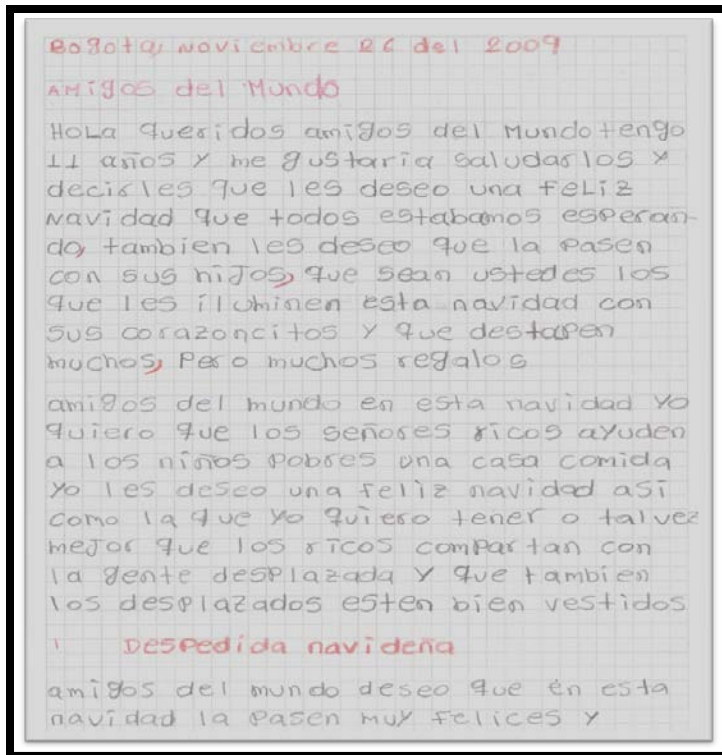 Bogota, Noviembre 26 del 2009
AMigos del Mundo
HoLa queridos amigos del Mundo tengo
11 años y me gustaria saludarlos y
decirles que les deseo una feliz
Navidad que todos estabamos esperan-
do, tambien les deseo que la pasen
con sus hijos, que sean ustedes los
que les iluminen esta navidad con
sus corazoncitos y que destapen
muchos, Pero muchos regalos
amigos del mundo en esta navidad yo
quiero que los señores ricos ayuden
a los niños pobres una casa comida
yo les deseo una feliz navidad asi
como la que yo quiero tener o talvez
mejor que los ricos compartan con
la gente desplazada y que tambien
los desplazados esten bien vestidos
Despedida navideña
amigos del mundo deseo que en esta
navidad la pasen muy felices y